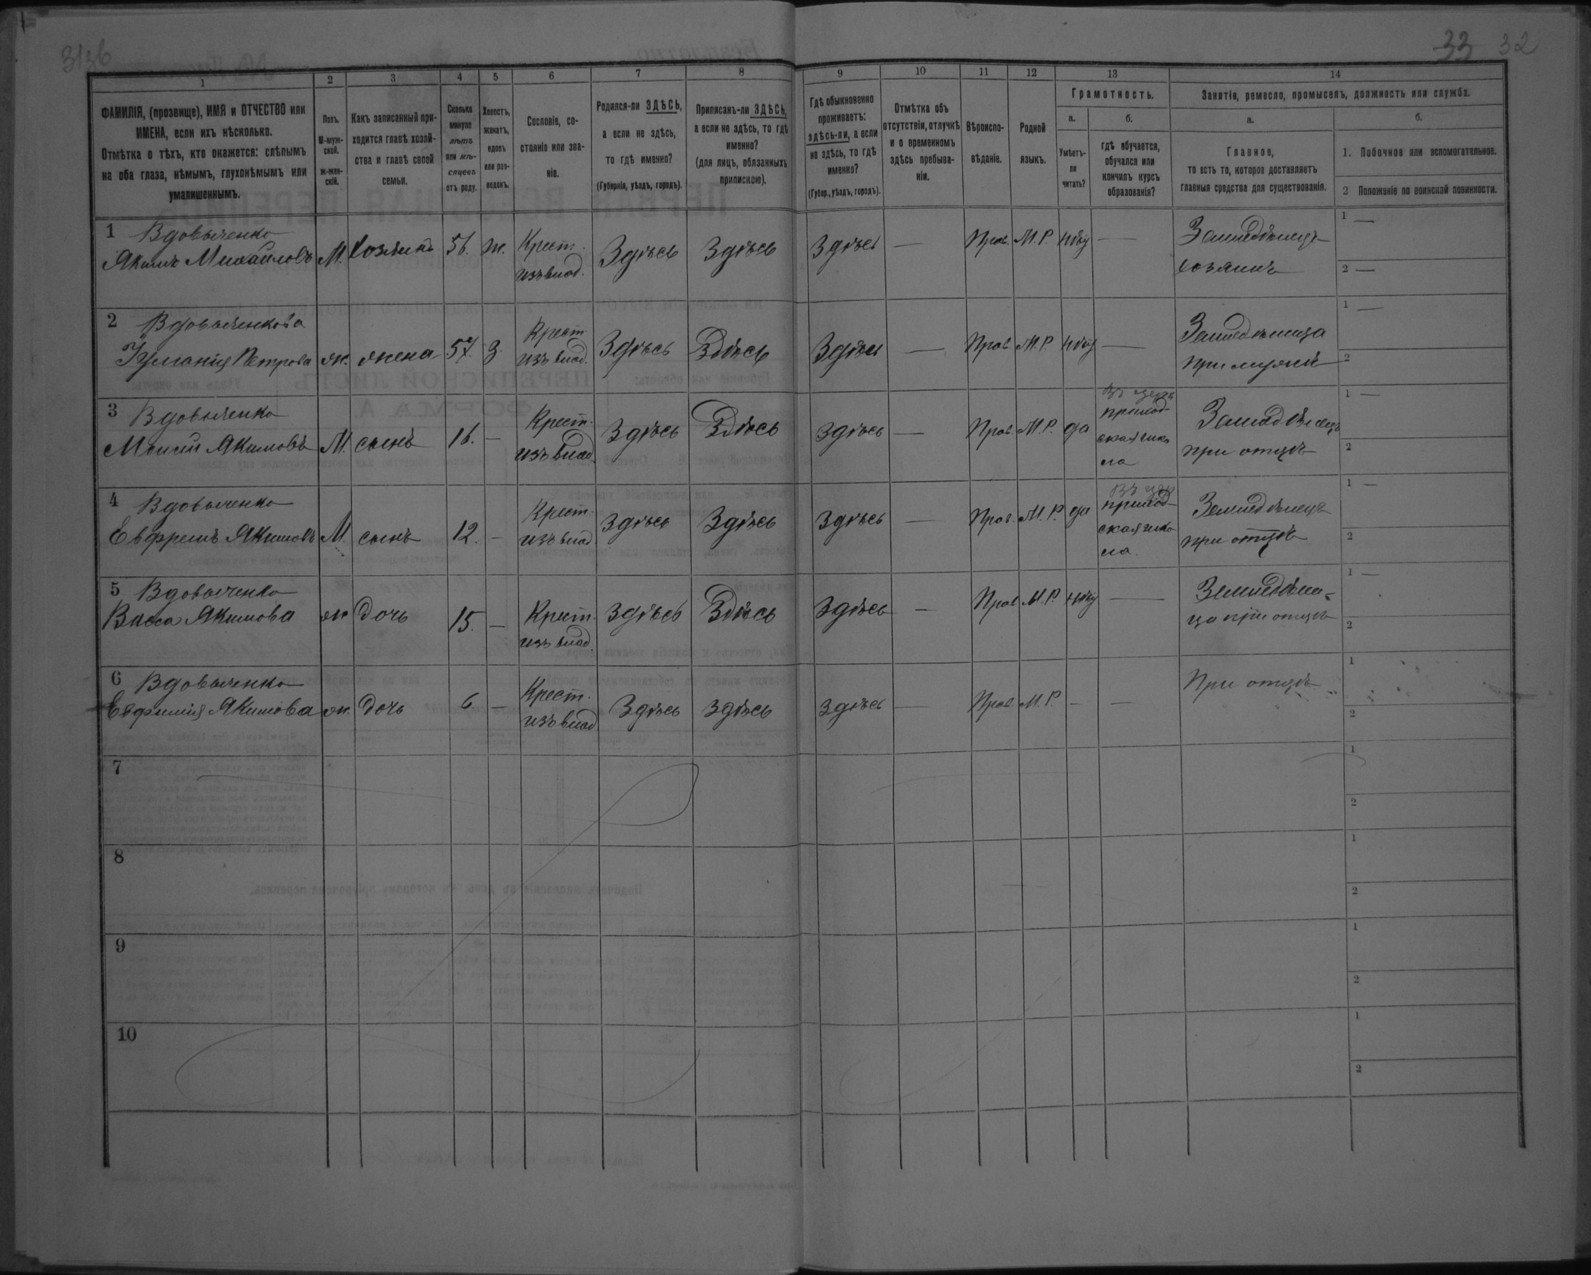 3136
33 32
1 2 3 4 5 6 7 8 9 10 11 12 13 14
ФАМИЛІЯ, (прозвище), ИМЯ и ОТЧЕСТВО или
ИМЕНА, если ихъ нѣсколько.
Отмѣтка о тѣхъ, кто окажется: слѣпымъ
на оба глаза, нѣмымъ, глухонѣмымъ или
умалишеннымъ.
Полъ.
М-муж-
ской.
Ж-жен-
скій.
Какъ записанный при-
ходится главѣ хозяй-
ства и главѣ своей
семьи.
Сколько
минуло
лѣтъ
или мѣ-
сяцевъ
отъ роду.
Холостъ,
женатъ,
вдовъ
или раз-
веденъ.
Сословіе, со-
стояніе или зва-
ніе.
Родился-ли ЗДѢСЬ,
а если не здѣсь,
то гдѣ именно?
(Губернія, уѣздъ, городъ).
Приписанъ-ли ЗДѢСЬ,
а если не здѣсь, то гдѣ
именно?
(для лицъ, обязанныхъ
припискою).
Гдѣ обыкновенно
проживаетъ:
здѣсь-ли, а если
не здѣсь, то гдѣ
именно?
(Губер., уѣздъ, городъ).
Отмѣтка объ
отсутствіи, отлучкѣ
и о временномъ
здѣсь пребыва-
ніи.
Вѣроиспо-
вѣданіе.
Родной
языкъ.
Грамотность.
а.
Умѣетъ-
ли
читать?
б.
гдѣ обучается,
обучался или
кончилъ курсъ
образованія?
Занятія, ремесло, промыселъ, должность или служба.
а.
Главное,
то есть то, которое доставляетъ
главныя средства для существованія.
б.
1. Побочное или вспомогательное.
2 Положеніе по воинской повинности.
1 Вдовыченко Крест. Земледѣлецъ 1 —
Якимъ Михайловъ М. хозяинъ 56. ж. изъ влад. Здѣсь Здѣсь Здѣсь — Прав. М.Р. нѣтъ — хозяинъ 2 —
2 Вдовыченкова Крест. Земледѣлица 1 —
Петрова ж. жена 57. з. изъ влад. Здѣсь Здѣсь Здѣсь — Прав. М.Р. нѣтъ — при мужѣ 2
3 Вдовыченко Крест. приход- Земледѣлецъ 1 —
Моисей Якимовъ М. сынъ 16. — изъ влад. Здѣсь Здѣсь Здѣсь — Прав. М.Р. да ская шко- при отцѣ 2
ла
4 Вдовыченко Крест. приход- Земледѣлецъ 1 —
Евфремъ Якимовъ М. сынъ 12. — изъ влад. Здѣсь Здѣсь Здѣсь — Прав. М.Р. да ская шко- при отцѣ 2
ла.
5 Вдовыченко Земледѣли- 1 —
Васса Якимова ж. дочь 15. — Крест. Здѣсь Здѣсь Здѣсь — Прав. М.Р. нѣтъ — ца при отцѣ 2
изъ влад.
6 Вдовыченко Крест. При отцѣ 1
Евфимія Якимова ж. дочь 6 — изъ влад. Здѣсь Здѣсь Здѣсь — Прав. М.Р. — — 2
7 1
2
8 1
2
9 1
2
10 1
2